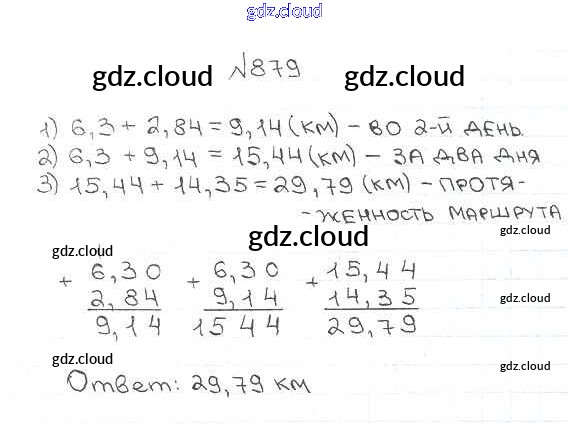 gdz.cloud
№879
gdz.cloud gdz.cloud
1) 6,3 + 2,84 = 9,14 (км) - во 2-й день.
2) 6,3 + 9,14 = 15,44 (км) - за два дня
3) 15,44 + 14,35 = 29,79 (км) - протя-
-женность маршрута
gdz.cloud
gdz.cloud gdz.cloud
+ 6,30 + 6,30 + 15,44
2,84 9,14 14,35
9,14 15 44 29,79
gdz.cloud
gdz.cloud gdz.cloud
Ответ: 29,79 км